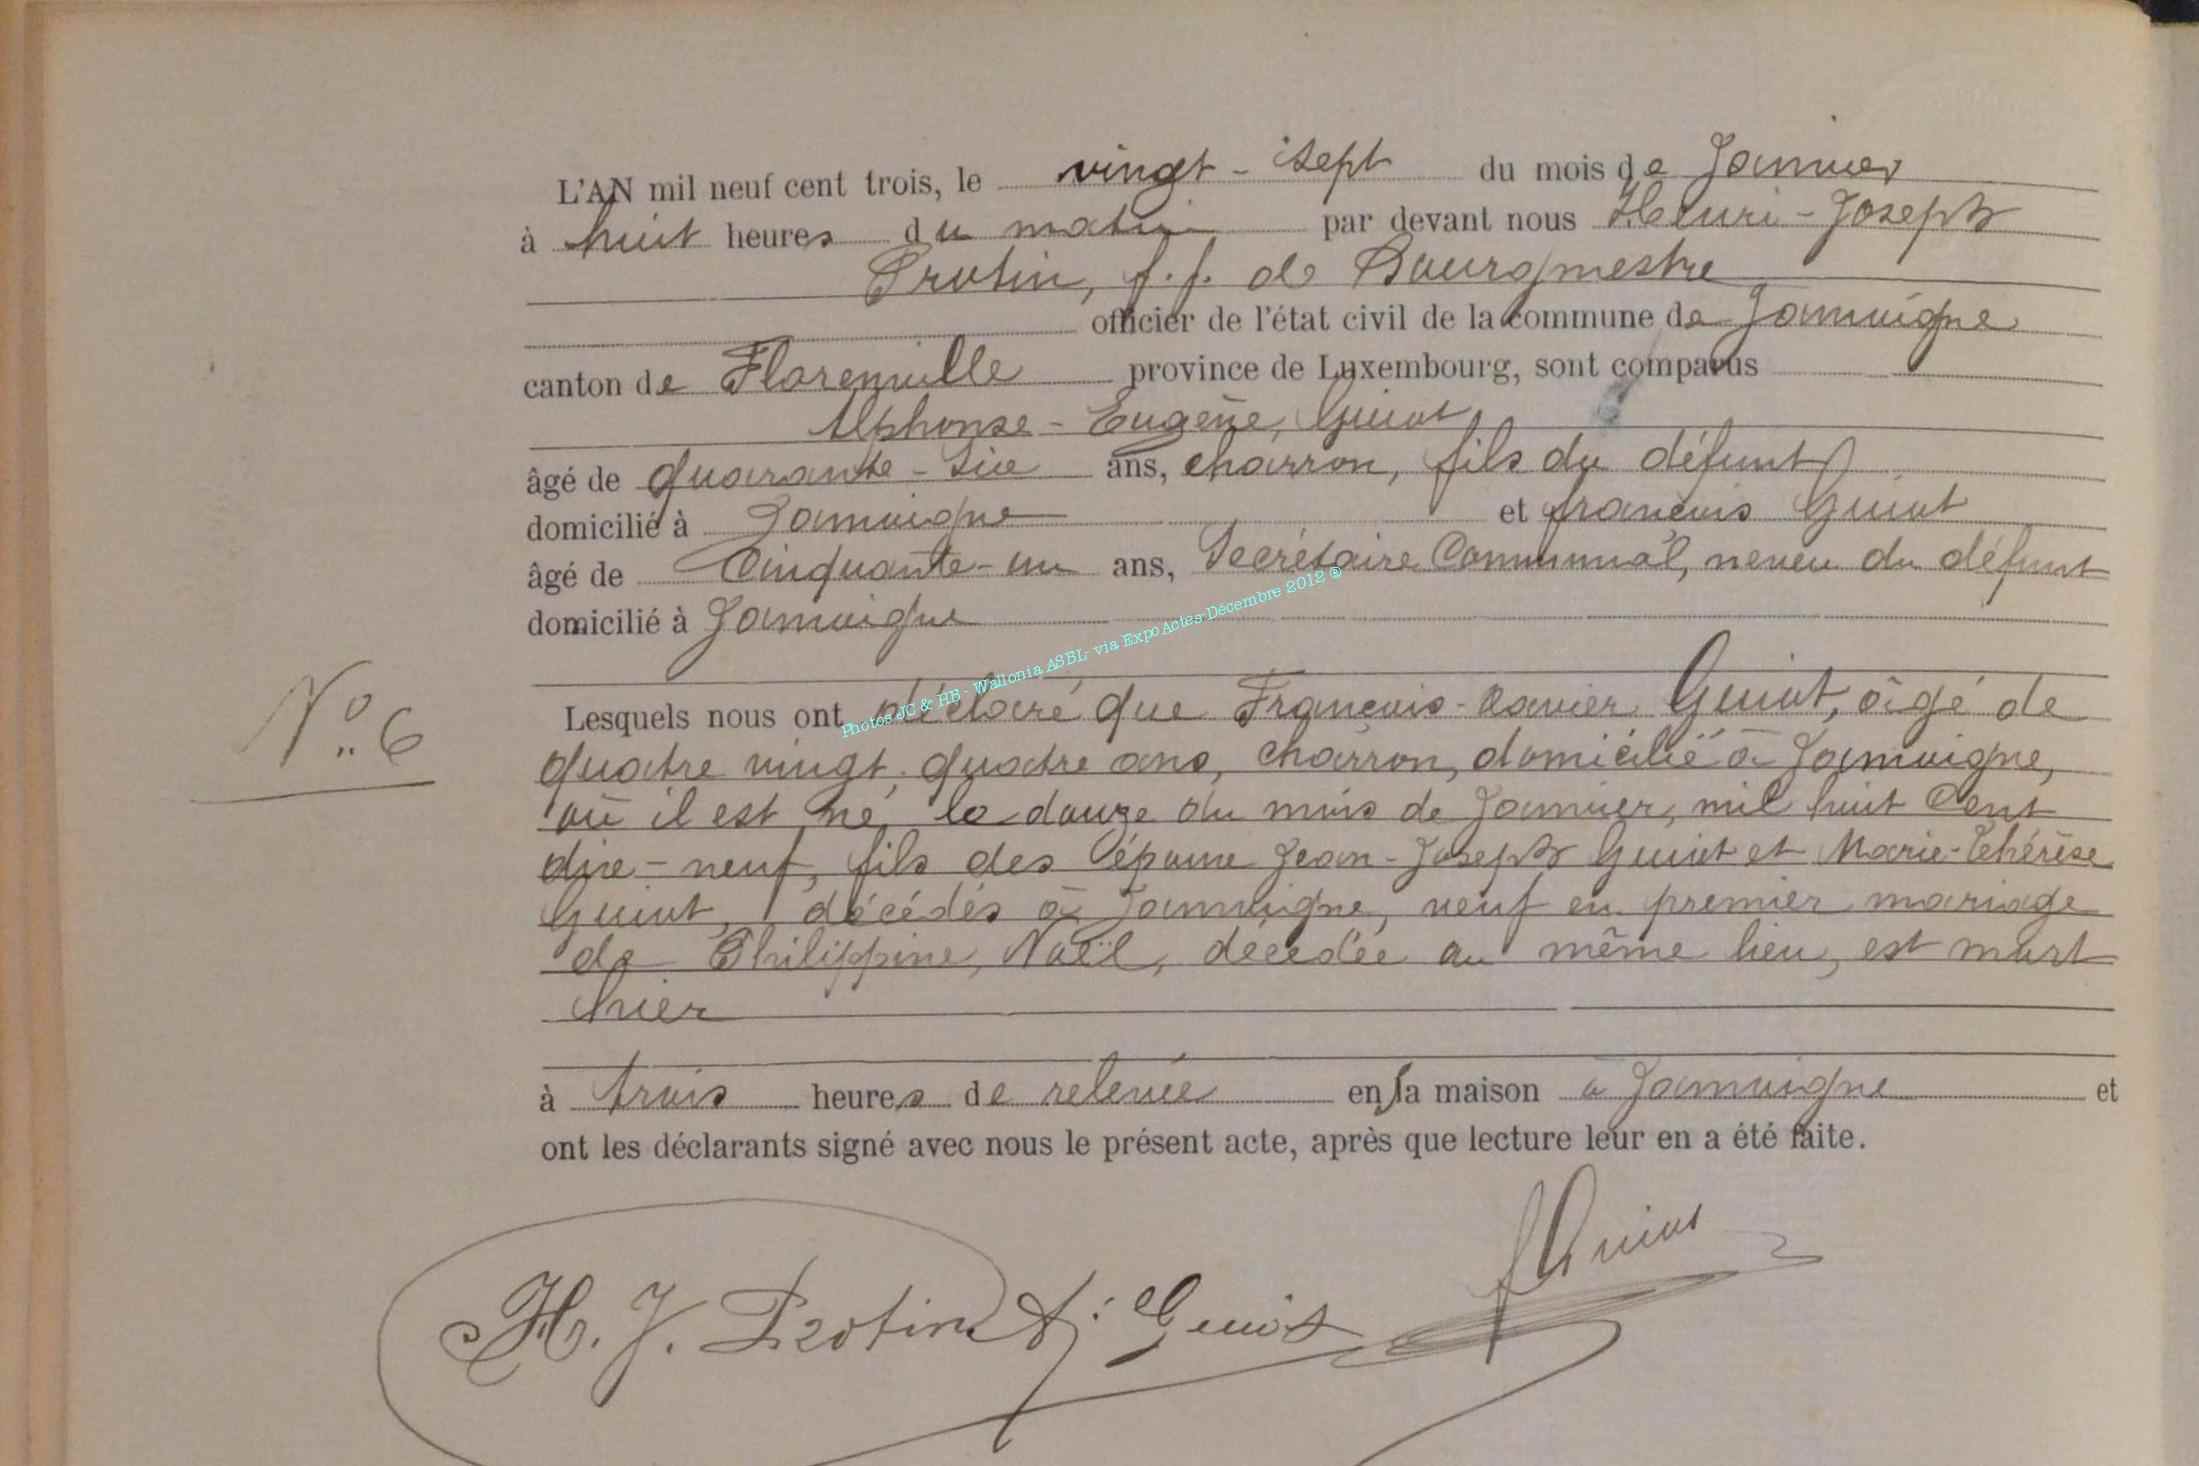 L'AN mil neuf cent trois, le vingt-sept du mois de Janvier
à huit heures du matin par devant nous Henri-Joseph
Protin, f.f. de Bourgmestre
officier de l'état civil de la commune de Jamoigne
canton de Florenville province de Luxembourg, sont comparus
Alphonse-Eugène, Guiot
âgé de quarante-six ans, charron, fils du défunt
domicilié à Jamoigne et François Guiot
âgé de Cinquante-un ans, Secrétaire Communal, neveu du défunt
domicilié à Jamoigne
Photos JC & HB - Wallonia ASBL- via Expo Actes-Décembre 2012 ®
N° 6
Lesquels nous ont déclaré que François-Xavier Guiot, âgé de
quatre vingt quatre ans, charron, domicilié à Jamoigne,
où il est né, le douze du mois de Janvier, mil huit Cent
dix-neuf, fils des époux Jean-Joseph Guiot et Marie-Thérèse
Guiot, décédés à Jamoigne, veuf en premier mariage
de Philippine, Noël, décédée au même lieu, est mort
hier
à trois heures de relevée en sa maison à Jamoigne et
ont les déclarants signé avec nous le présent acte, après que lecture leur en a été faite.
H. J. Protin A: Guiot F Guiot